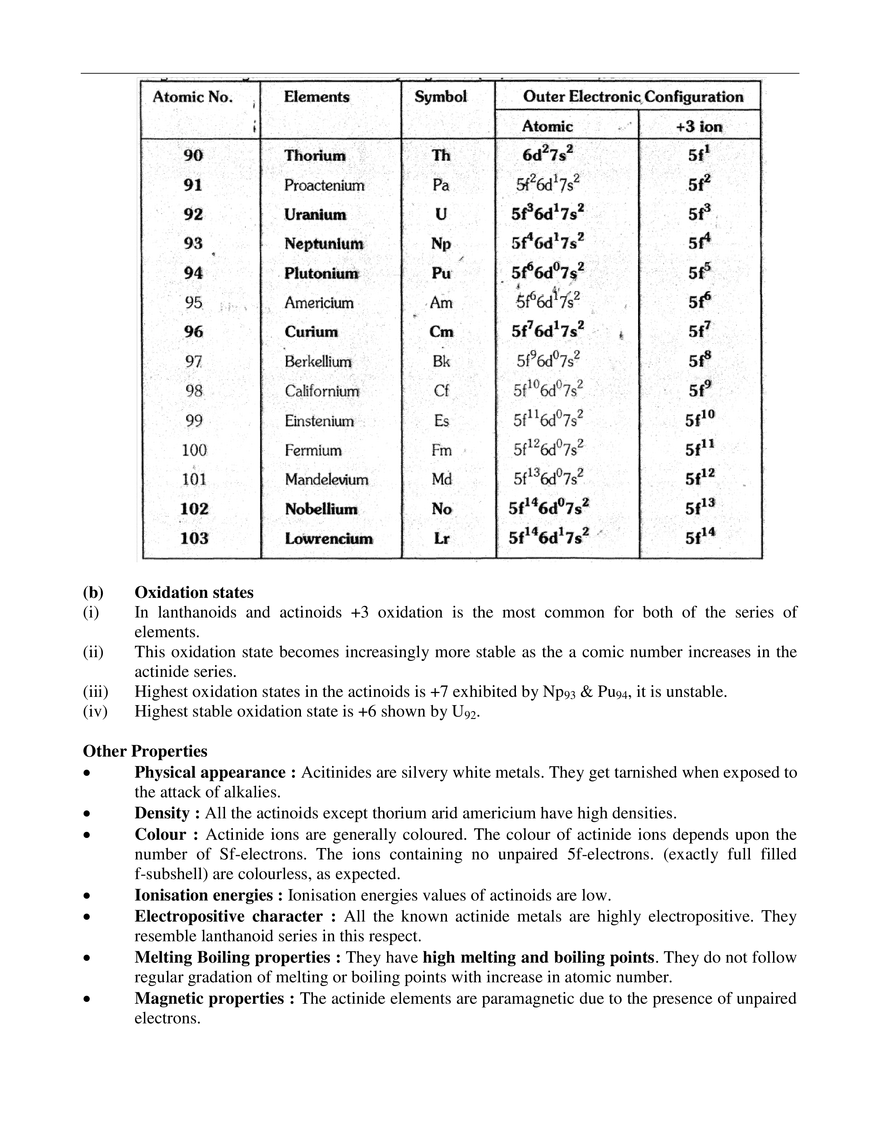 Atomic No. Elements Symbol Outer Electronic Configuration
Atomic +3 ion
90 Thorium Th 6d²7s² 5f¹
91 Proactenium Pa 5f²6d¹7s² 5f²
92 Uranium U 5f³6d¹7s² 5f³
93 Neptunium Np 5f⁴6d¹7s² 5f⁴
94 Plutonium Pu 5f⁶6d⁰7s² 5f⁵
95 Americium Am 5f⁶6d¹7s² 5f⁶
96 Curium Cm 5f⁷6d¹7s² 5f⁷
97 Berkellium Bk 5f⁹6d⁰7s² 5f⁸
98 Californium Cf 5f¹⁰6d⁰7s² 5f⁹
99 Einstenium Es 5f¹¹6d⁰7s² 5f¹⁰
100 Fermium Fm 5f¹²6d⁰7s² 5f¹¹
101 Mandelevium Md 5f¹³6d⁰7s² 5f¹²
102 Nobellium No 5f¹⁴6d⁰7s² 5f¹³
103 Lowrencium Lr 5f¹⁴6d¹7s² 5f¹⁴
(b) Oxidation states
(i) In lanthanoids and actinoids +3 oxidation is the most common for both of the series of
elements.
(ii) This oxidation state becomes increasingly more stable as the a comic number increases in the
actinide series.
(iii) Highest oxidation states in the actinoids is +7 exhibited by Np₉₃ & Pu₉₄, it is unstable.
(iv) Highest stable oxidation state is +6 shown by U₉₂.
Other Properties
• Physical appearance : Acitinides are silvery white metals. They get tarnished when exposed to
the attack of alkalies.
• Density : All the actinoids except thorium arid americium have high densities.
• Colour : Actinide ions are generally coloured. The colour of actinide ions depends upon the
number of Sf-electrons. The ions containing no unpaired 5f-electrons. (exactly full filled
f-subshell) are colourless, as expected.
• Ionisation energies : Ionisation energies values of actinoids are low.
• Electropositive character : All the known actinide metals are highly electropositive. They
resemble lanthanoid series in this respect.
• Melting Boiling properties : They have high melting and boiling points. They do not follow
regular gradation of melting or boiling points with increase in atomic number.
• Magnetic properties : The actinide elements are paramagnetic due to the presence of unpaired
electrons.